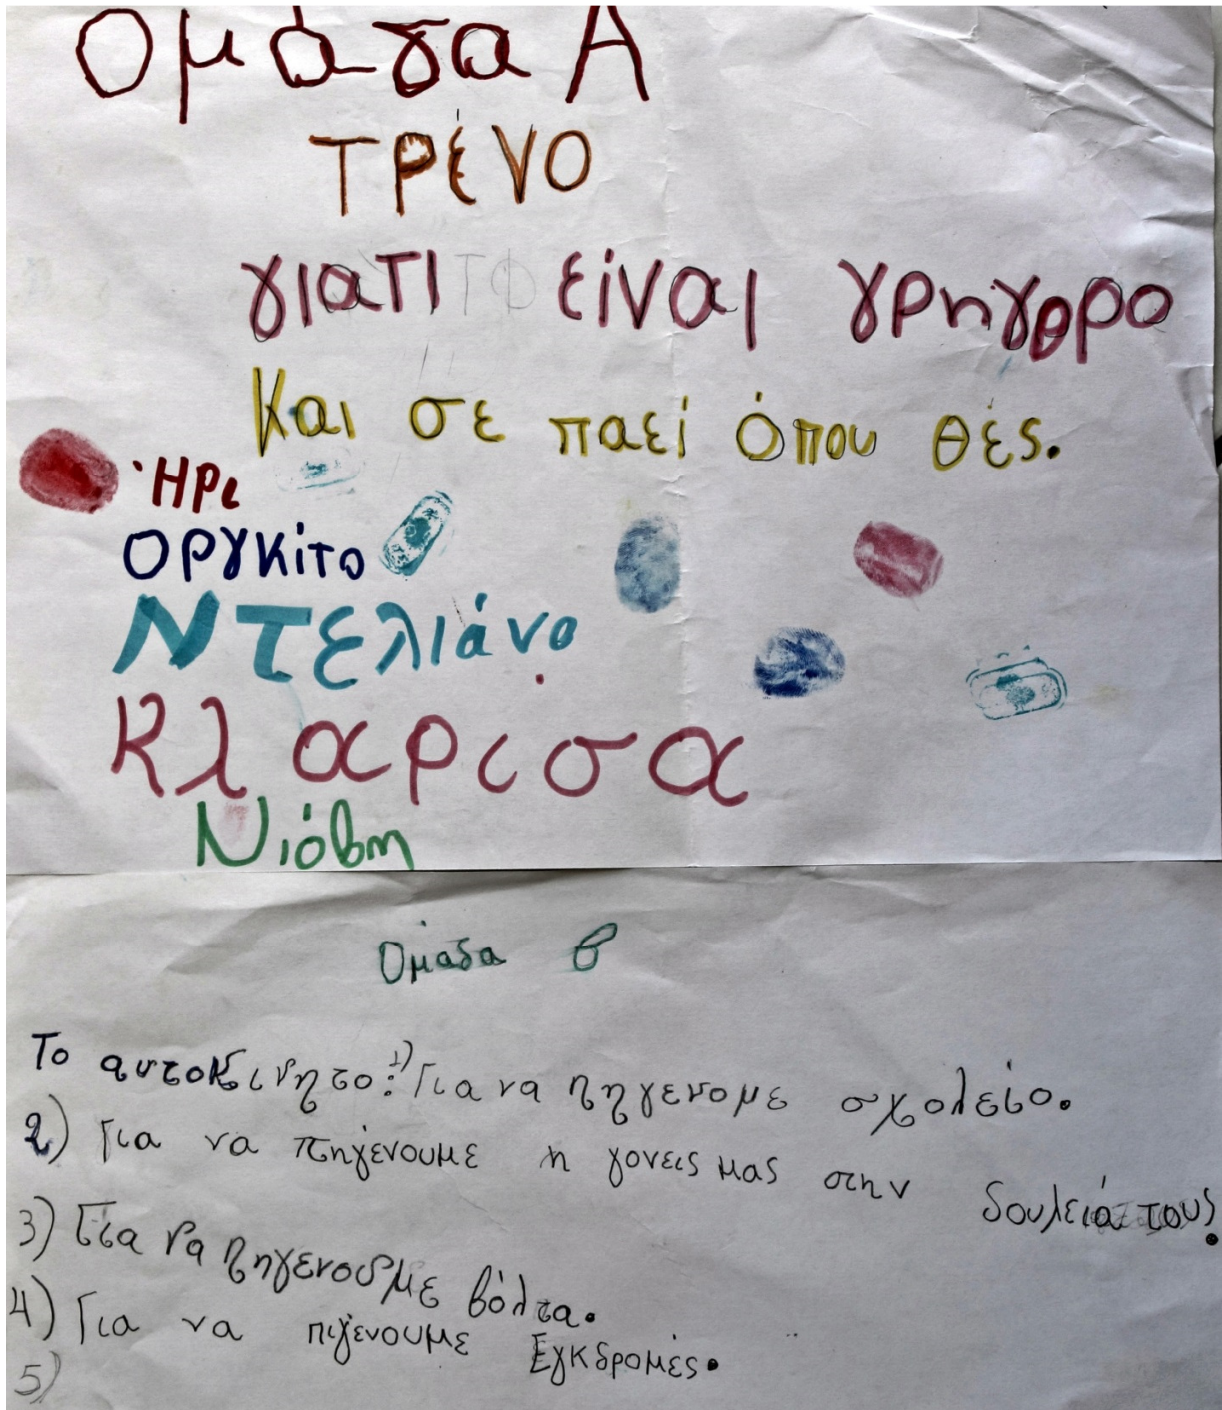 Ομάδα Α
ΤΡένο
γιατι είναι γρηγορο
και σε παεί όπου θές.
Ήρι
Οργκίτο
Ντελιάνο
Κλαρισα
Νιόβη
Ομαδα β
Το αυτοκινητο: 1) Για να πηγενομε σχολείο.
2) Για να πηγένουμε η γονεις μας στην δουλειά τους.
3) Για να πηγενουμε βόλτα.
4) Για να πιγένουμε Εγκδρομές.
5)